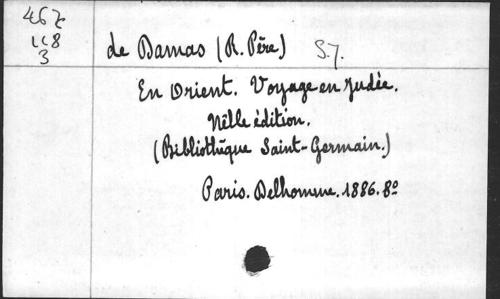 467
118
3
de Damas (R. Père) S.J.
En Orient. Voyage en Judée.
Nelle édition.
(Bibliothèque Saint-Germain.)
Paris. Delhomme. 1886. 8º